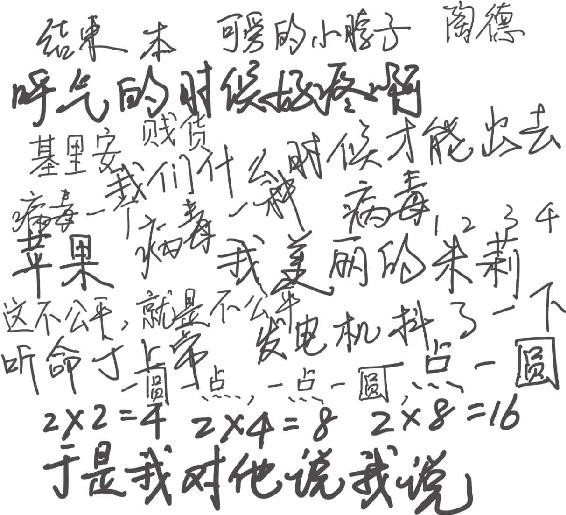 结束 本 可爱的小脖子 陶德
呼气的时候好疼啊
基里安 贱货
我们什么时候才能出去
病毒一 病毒一种 病毒 1 2 3 4
苹果 我美丽的朱莉
这不公平,就是不公平
发电机抖了一下
听命于上帝
一圆 点, 一点一圆, 点一圆
2×2=4 2×4=8 2×8=16
于是我对他说我说